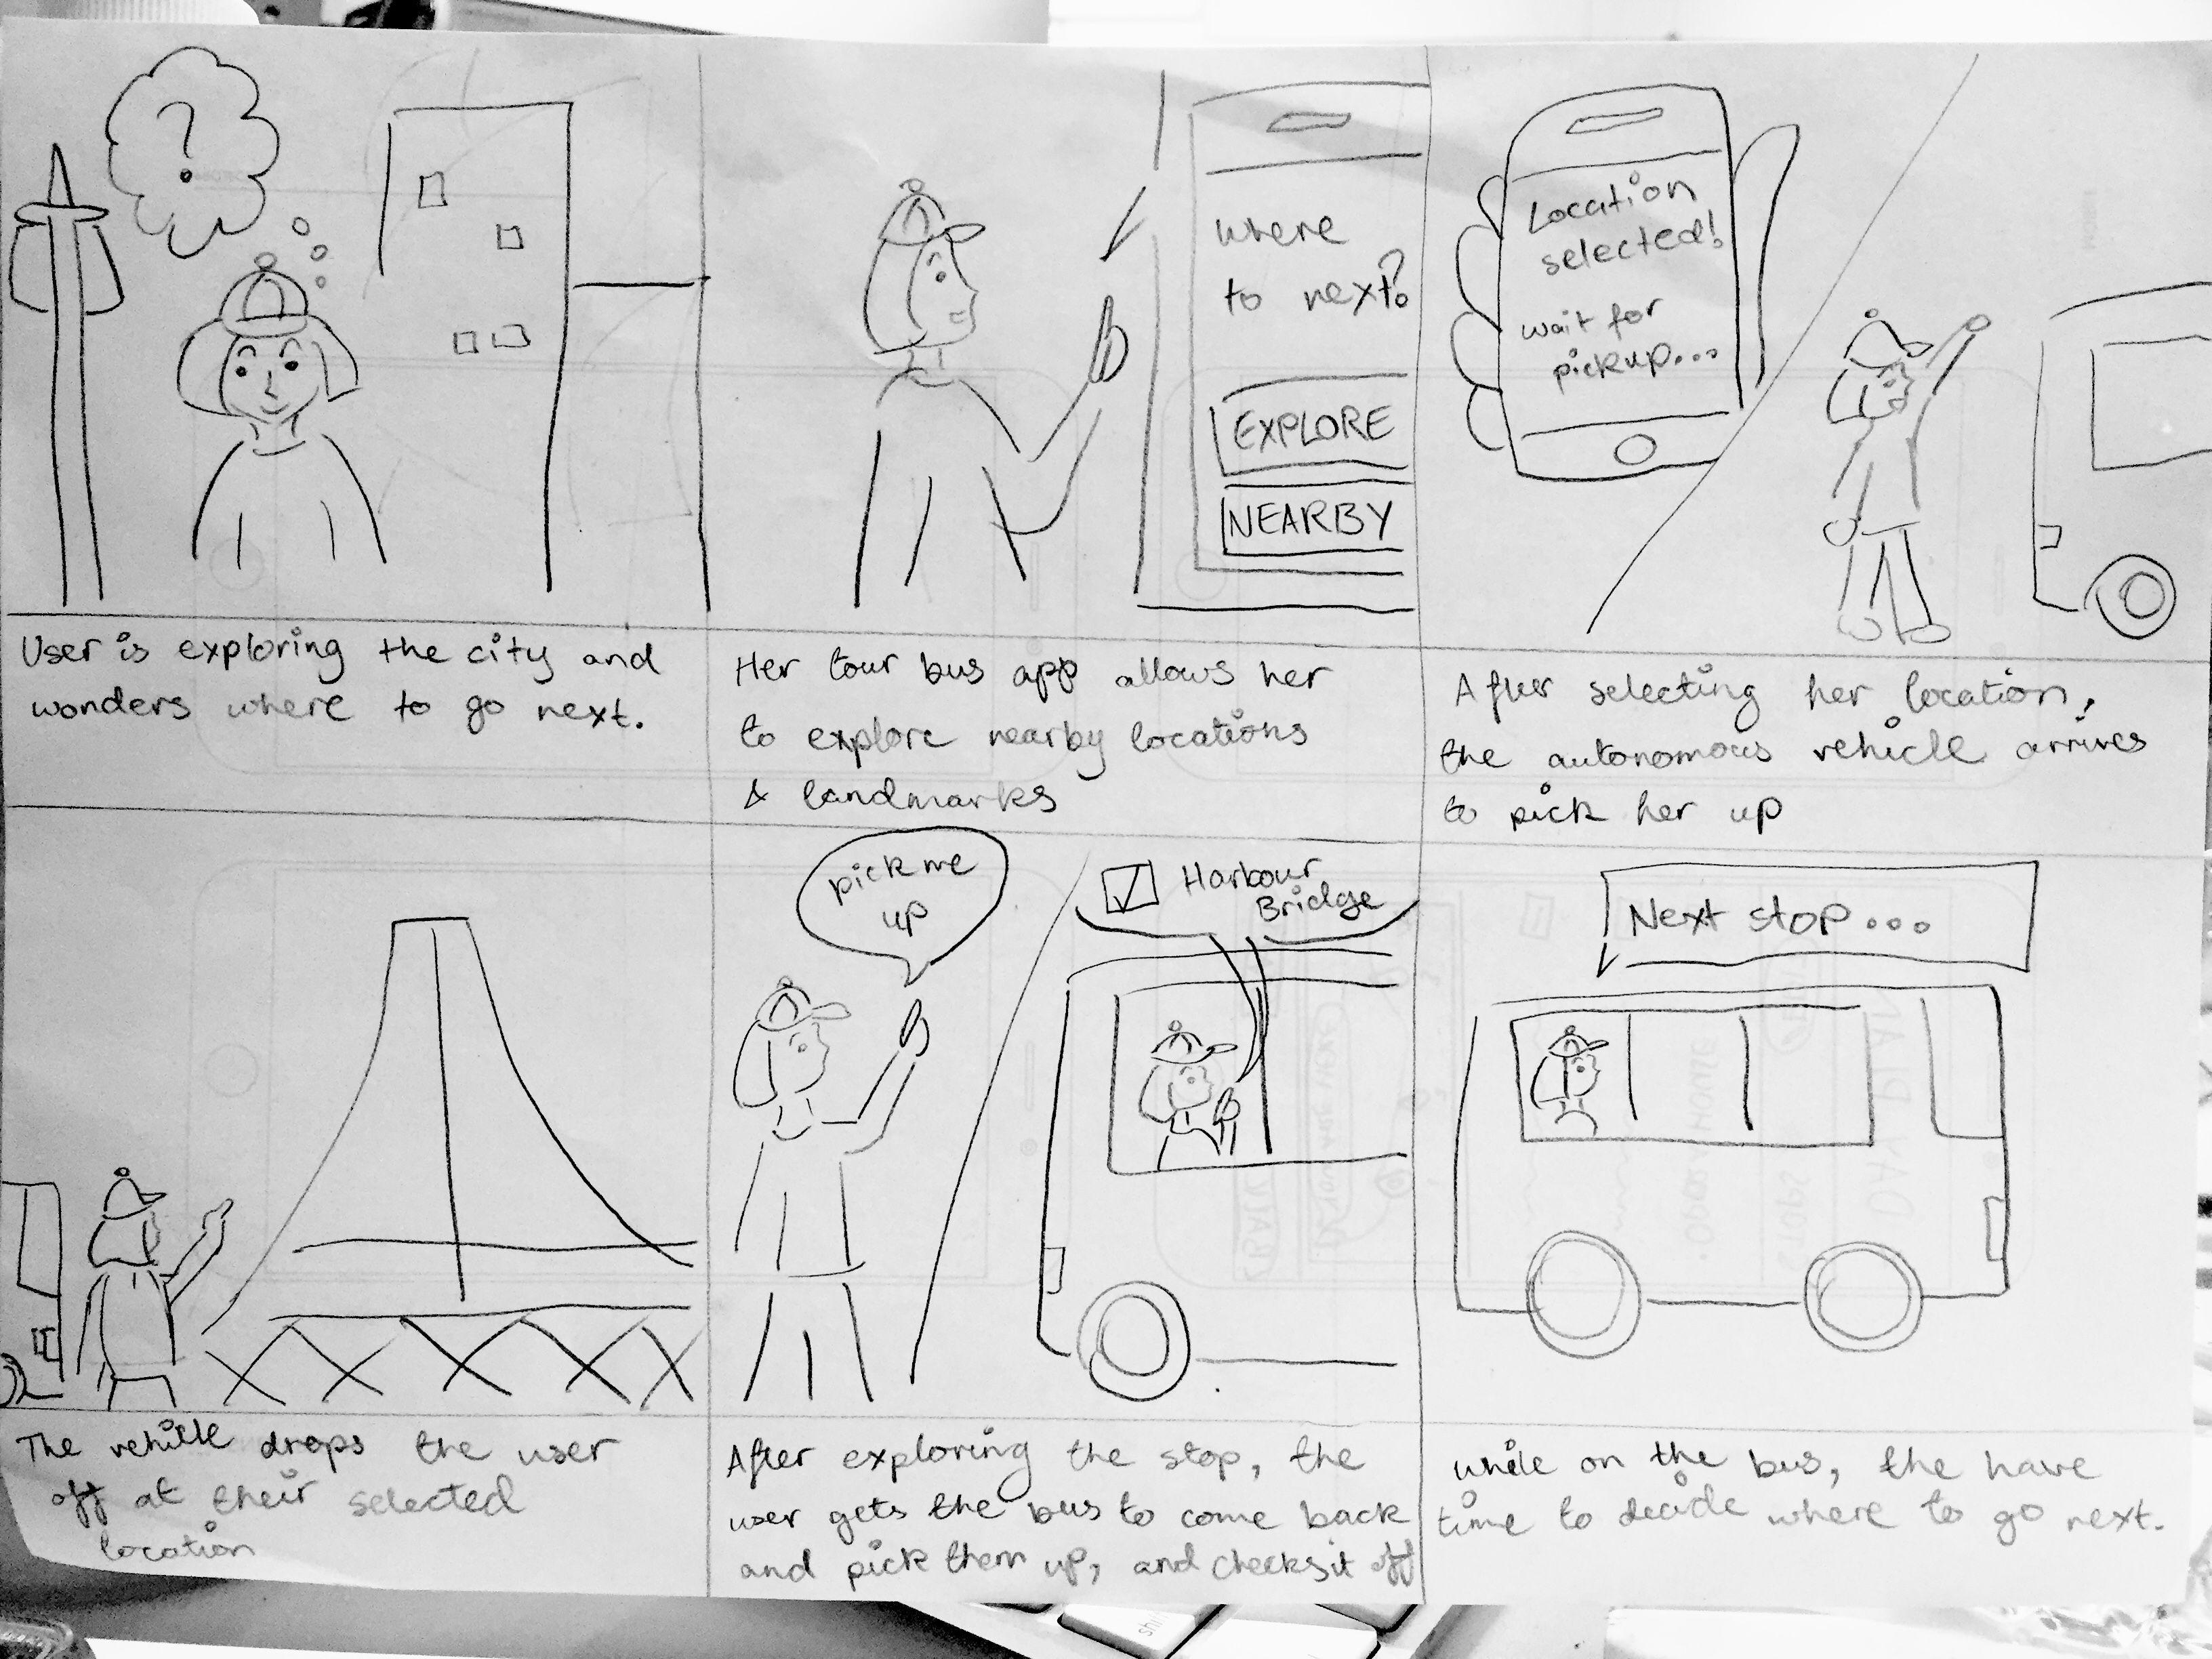 ?
User is exploring the city and
wonders where to go next.
where
to next?
EXPLORE
NEARBY
Her tour bus app allows her
to explore nearby locations
& landmarks
Location
selected!
wait for
pickup...
After selecting her location,
the autonomous vehicle arrives
to pick her up
The vehicle drops the user
off at their selected
location
pick me
up
Harbour
Bridge
After exploring the stop, the
user gets the bus to come back
and pick them up, and checks it off
Next stop...
while on the bus, the have
time to decide where to go next.